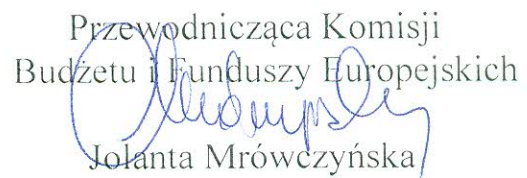 Przewodnicząca Komisji
Budżetu i Funduszy Europejskich
Jolanta Mrówczyńska